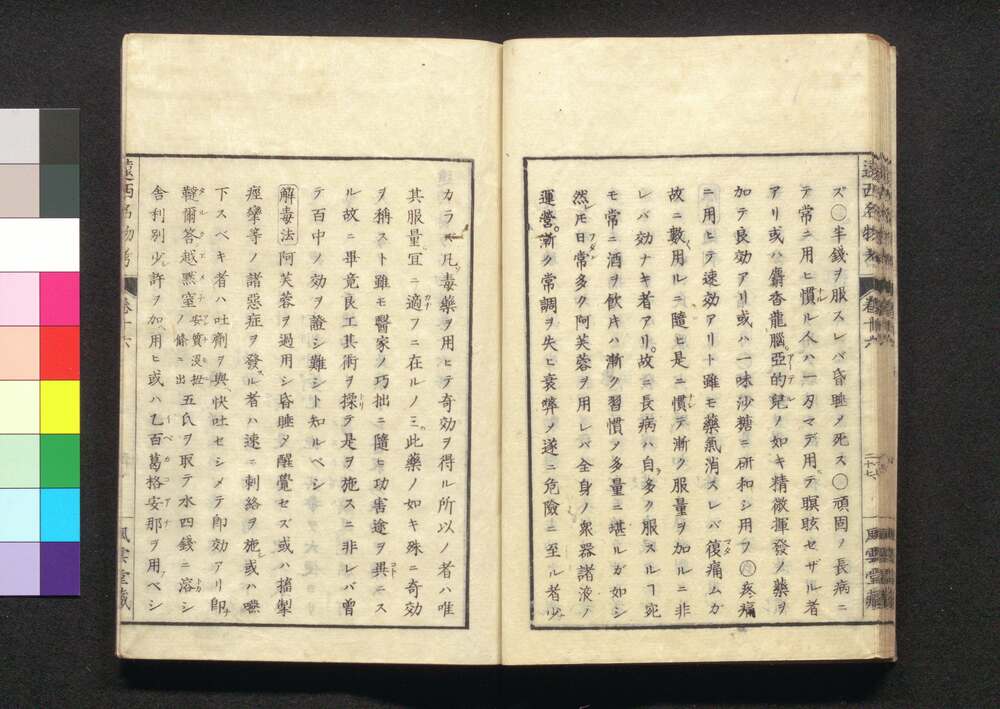 遠西名物考 卷十六 二十七 風雲堂藏
ズ○半錢ヲ服スレバ昏睡ノ死ス○頑固ノ長病ニ
テ常ニ用ヒ慣ル人ハ一刄マデ用テ瞑眩セザル者
アリ或ハ麝香龍腦亞的兒ノ如キ精微揮發ノ藥ヲ
加テ良効アリ或ハ一味沙糖ニ研和シ用フ○疼痛
ニ用ヒテ速効アリト雖モ藥氣消スレバ復痛ムガ
故ニ數用ルニ隨ヒ是ニ慣テ漸ク服量ヲ加ルニ非
レバ効ナキ者アリ。故ニ長病ハ自多ク服スルヿ宛
モ常ニ酒ヲ飲キハ漸ク習慣ノ多量ニ堪ルガ如シ
然レ𪜈日常多ク阿芙蓉ヲ用レバ全身ノ衆器諸液ノ
運營。漸ク常調ヲ失ヒ衰弊ノ遂ニ危險ニ至ル者少
カラズ凡毒藥ヲ用ヒテ奇効ヲ得ル所以ノ者ハ唯
其服量宜ニ適フニ在ルノミ。此藥ノ如キ殊ニ奇効
ヲ稱スト雖モ醫家ノ巧拙ニ隨ヒ功害途ヲ異ニス
ル故ニ畢竟良工其術ヲ操テ是ヲ施スニ非レバ曽
テ百中ノ効ヲ證シ難シト知ルベシ
解毒法 阿芙蓉ヲ過用シ昏睡ヲ醒覺セズ或ハ搐掣
痙攣等ノ諸惡症ヲ發スル者ハ速ニ刺絡ヲ施シ或ハ嚥
下スベキ者ハ吐劑ヲ與ヘ快吐セシメテ卽効アリ卽
韃爾答越黙窒ノ安質没扭ノ條ニ出 五氏ヲ取テ水四錢ニ溶シ
舎利別少許ヲ加ヘ用ヒ或ハ乙百葛格安那ヲ用ベシ
遠西名物考 卷十六 風雲堂藏